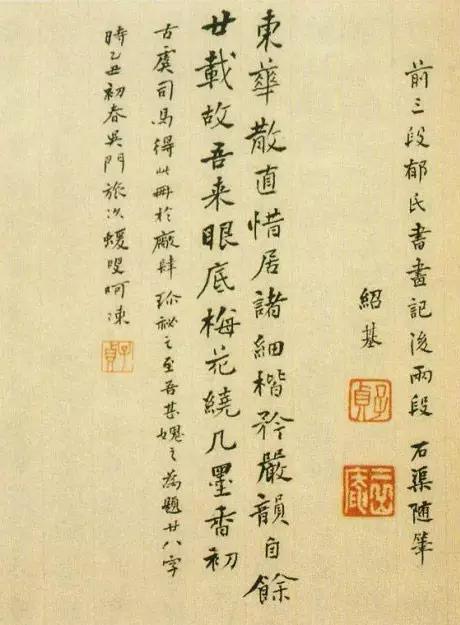 前三段郁氏書畫記後兩段石渠隨筆
紹基
子貞
東華散直惜居諸細楷矜嚴韻自餘
廿載故吾来眼底梅花繞几墨香初
古虞司馬得此冊於廠肆珍祕之至吾甚媿之為題廿八字
時乙丑初春吳門旅次蝯叟呵凍
子貞